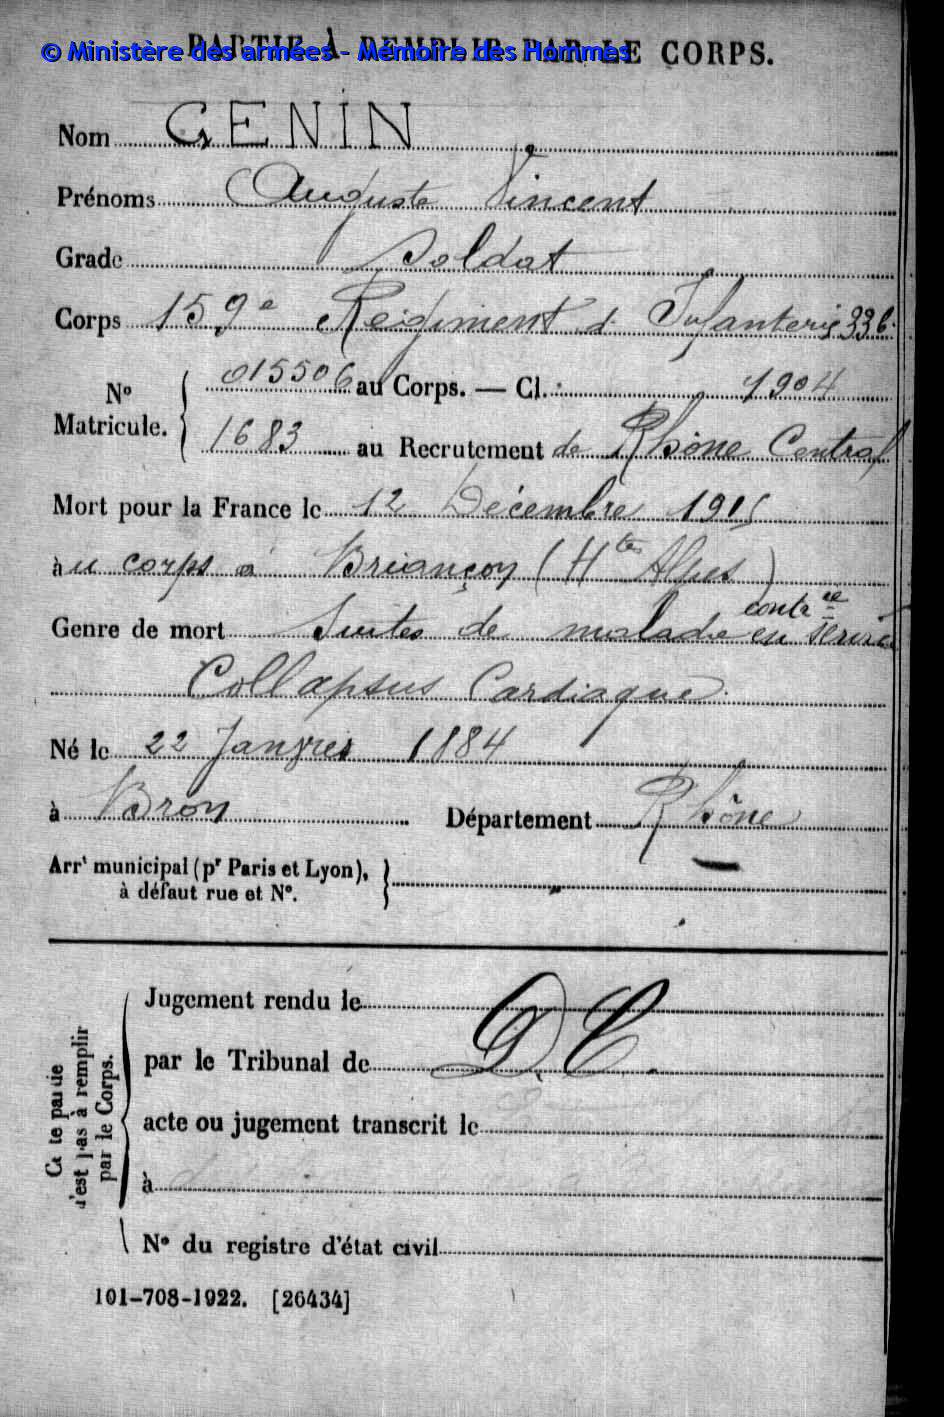 PARTIE À REMPLIR PAR LE CORPS.
© Ministère des armées - Mémoire des Hommes
Nom GENIN
Prénoms Auguste Vincent
Grade Soldat
Corps 159e Régiment d'Infanterie 336.
No Matricule. { 015506 au Corps. — Cl. : 1904
1683 au Recrutement de Rhône Central
Mort pour la France le 12 Décembre 1915
àu corps à Briançon (Htes Alpes)
Genre de mort Suites de maladie contractée en service
Collapsus Cardiaque.
Né le 22 Janvier 1884
à Bron Département Rhône
Arrt municipal (pr Paris et Lyon),
à défaut rue et No. }
Jugement rendu le
par le Tribunal de D. C.
acte ou jugement transcrit le
à
No du registre d'état civil
Cette partie
n'est pas à remplir
par le Corps.
101-708-1922. [26434]